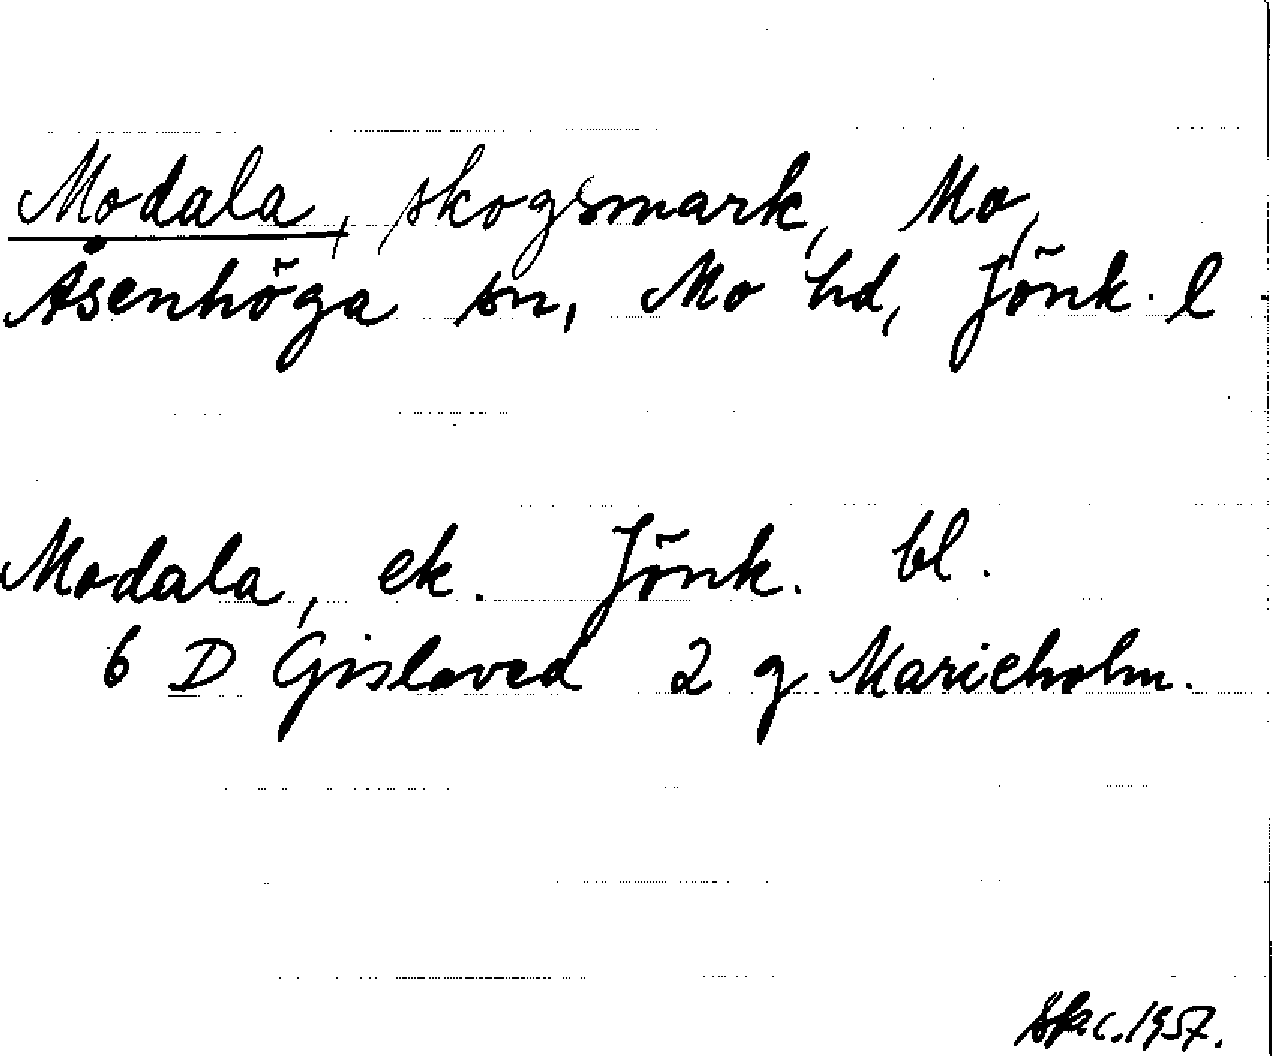 Modala, skogsmark, Mo,
Åsenhöga sn, Mo hd, Jönk. l
Modala, ek. Jönk. bl.
6 D Gislaved 2 g Marieholm.
1957.